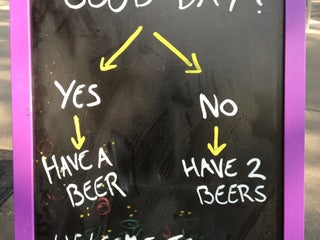 GOOD DAY?
YES
NO
HAVE A
BEER
HAVE 2
BEERS
WELCOME TO